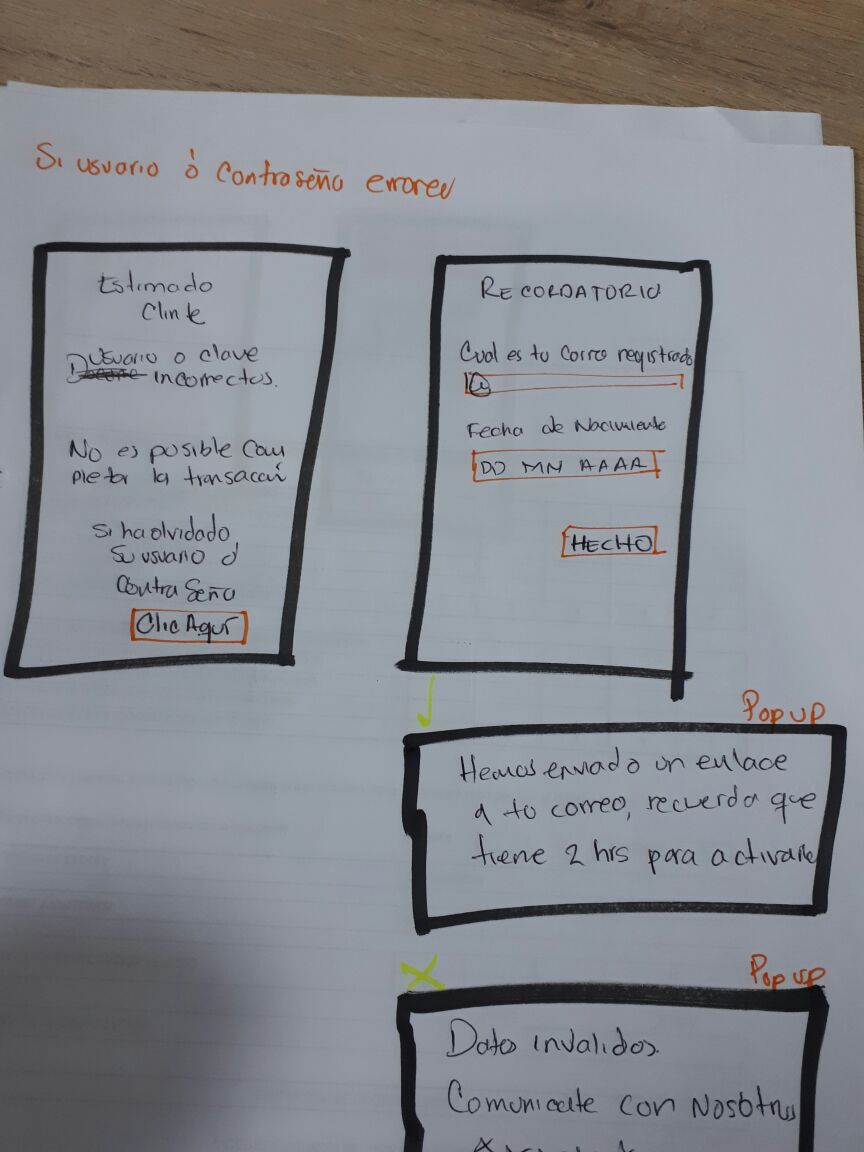 Si usuario ó contraseña errónea
Estimado
Clinte
Usuario o clave
incorrectos.
No es posible com
pletar la transacción
Si ha olvidado
su usuario ó
contraseña
Clic Aquí
RECORDATORIO
Cual es tu correo registrado
@
Fecha de Nacimiento
DD MM AAAA
HECHO
Pop up
Hemos enviado un enlace
a tu correo, recuerda que
tiene 2 hrs para activarlo
Pop up
Datos invalidos.
Comunicate con Nosotros